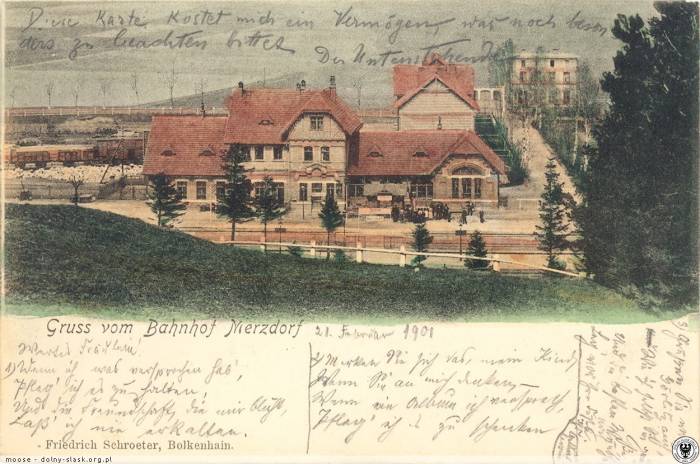 Diese Karte kostet mich ein Vermögen, was noch beson
ders zu beachten bittet
Der Untenstehende
Gruss vom Bahnhof Merzdorf
21. Februar 1901
Wertes Fräulein!
1) Wenn ich was versprochen hab',
Pfleg' ich es zu halten,
Und die Freundschaft, die mir blüht,
Laß' ich nie erkalten.
2) Merken Sie sich das, mein Kind,
Wenn Sie an mich denken,
Wenn ein Album ich versprach,
Pfleg' ich es zu schenken
Friedrich Schroeter, Bolkenhain.
moose - dolny-slask.org.pl